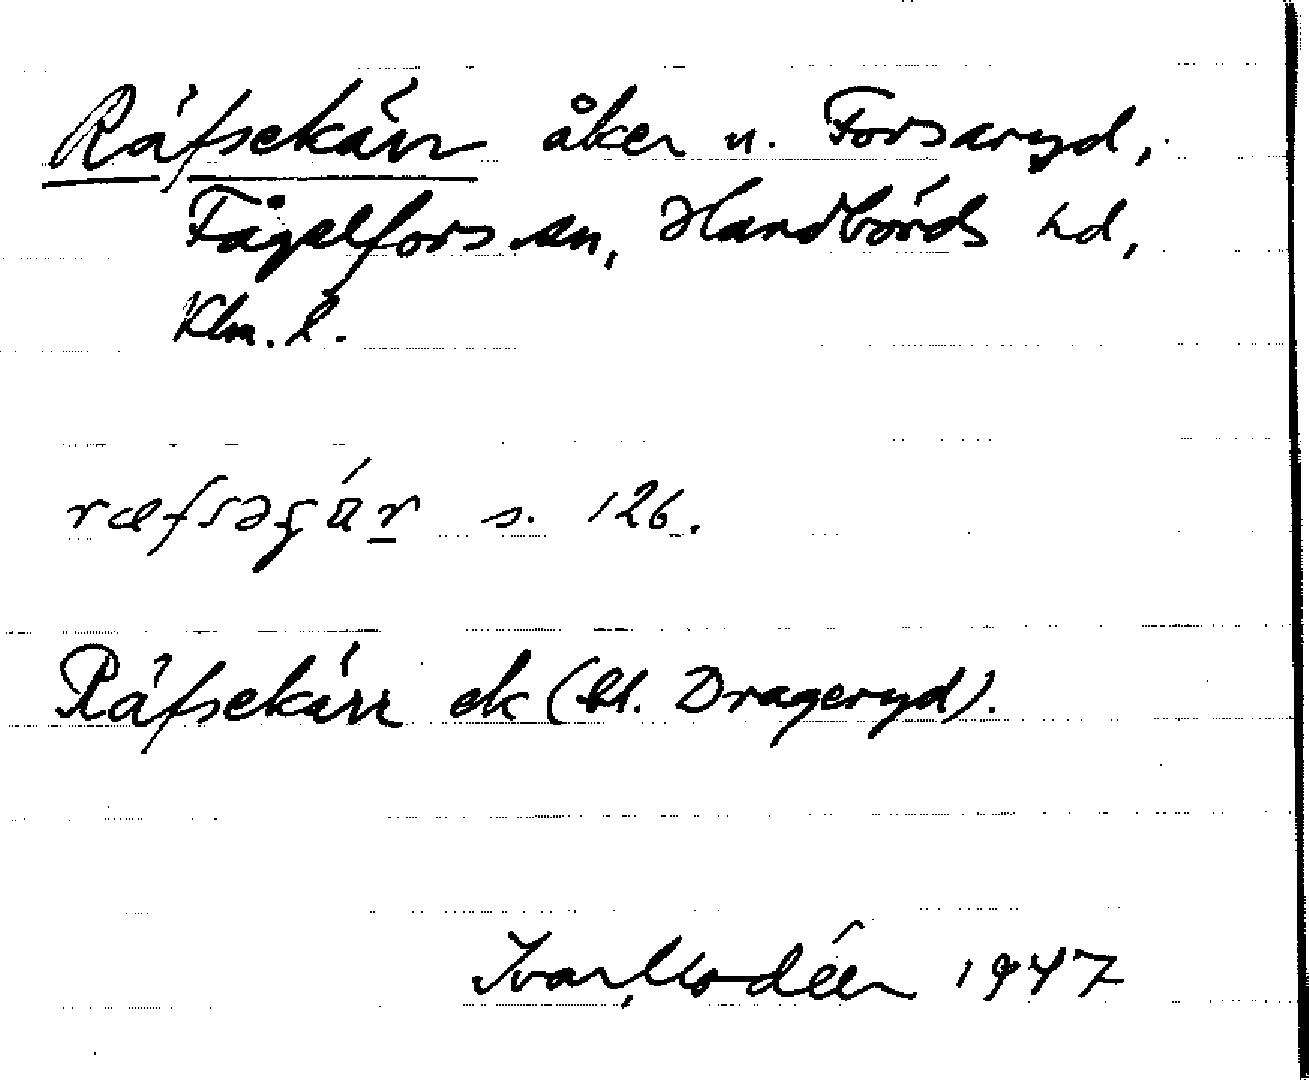 Räfsekärr åker u. Forsaryd,
Fågelfors sn, Handbörds hd,
Klm. l.
ræfsəʂär s. 126.
Räfsekärr ek (bl. Drageryd).
Ivar Modéer 1947